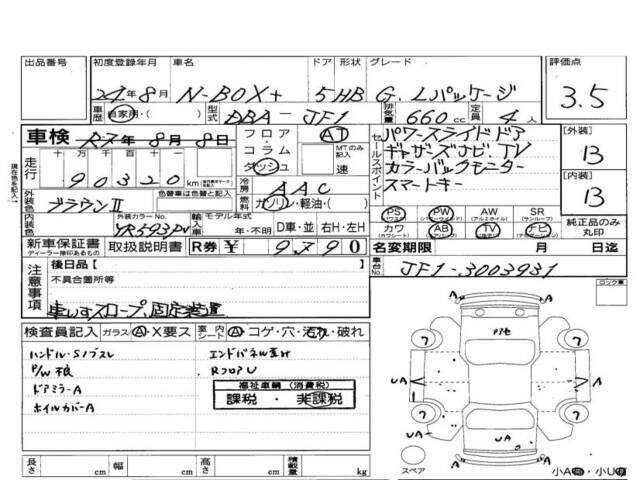 出品番号 初度登録年月 車名 ドア 形状 グレード 評価点
24年8月 N-BOX+ 5HB G.Lパッケージ 3.5
車歴 自家用・( ) 型式 DBA-JF1 排気量 660cc 定員 4人
車検 R7年8月8日 フロア・コラム・ダッシュ AT MTのみ記入 速
走行 十 万 千 百 十 一
90320 km
冷房 AAC
セールスポイント パワースライドドア
ギャザーズナビ.TV
カラーバックモニター
スマートキー
[外装] 13
[内装] 13
純正品のみ丸印
現在色を記入
外装色 ブラウンII 色替車は色替と記入 燃料 ガソリン・軽油・( )
内装色 外装カラーNo. YR593PV 輸入車 モデル年式 年・不明 D車・並 右H・左H
PS PW AW SR
(パワステ) (パワーウインド) (アルミホイル) (サンルーフ)
カワ AB TV ナビ
(カワシート) (エアバッグ)
新車保証書 取扱説明書 R券 ¥ 9790
ディーラー捺印あるもの
名変期限 月 日迄
注意事項 後日品[ ]
不具合箇所等
車いすスロープ、固定装置
車台No. JF1-3003931
ロック番
検査員記入 ガラス A・X要ス 室内シート A・コゲ・穴・汚れ・破れ
ハンドル・S/ブスレ
P/W不良
ドアミラーA
ホイルカバーA
エンドパネル歪け
RフロアU
福祉車輌 (消費税)
課税・非課税
UA
A
UA
UA
スペア
小A 小U
長さ cm 幅 cm 高さ cm 積載量 kg